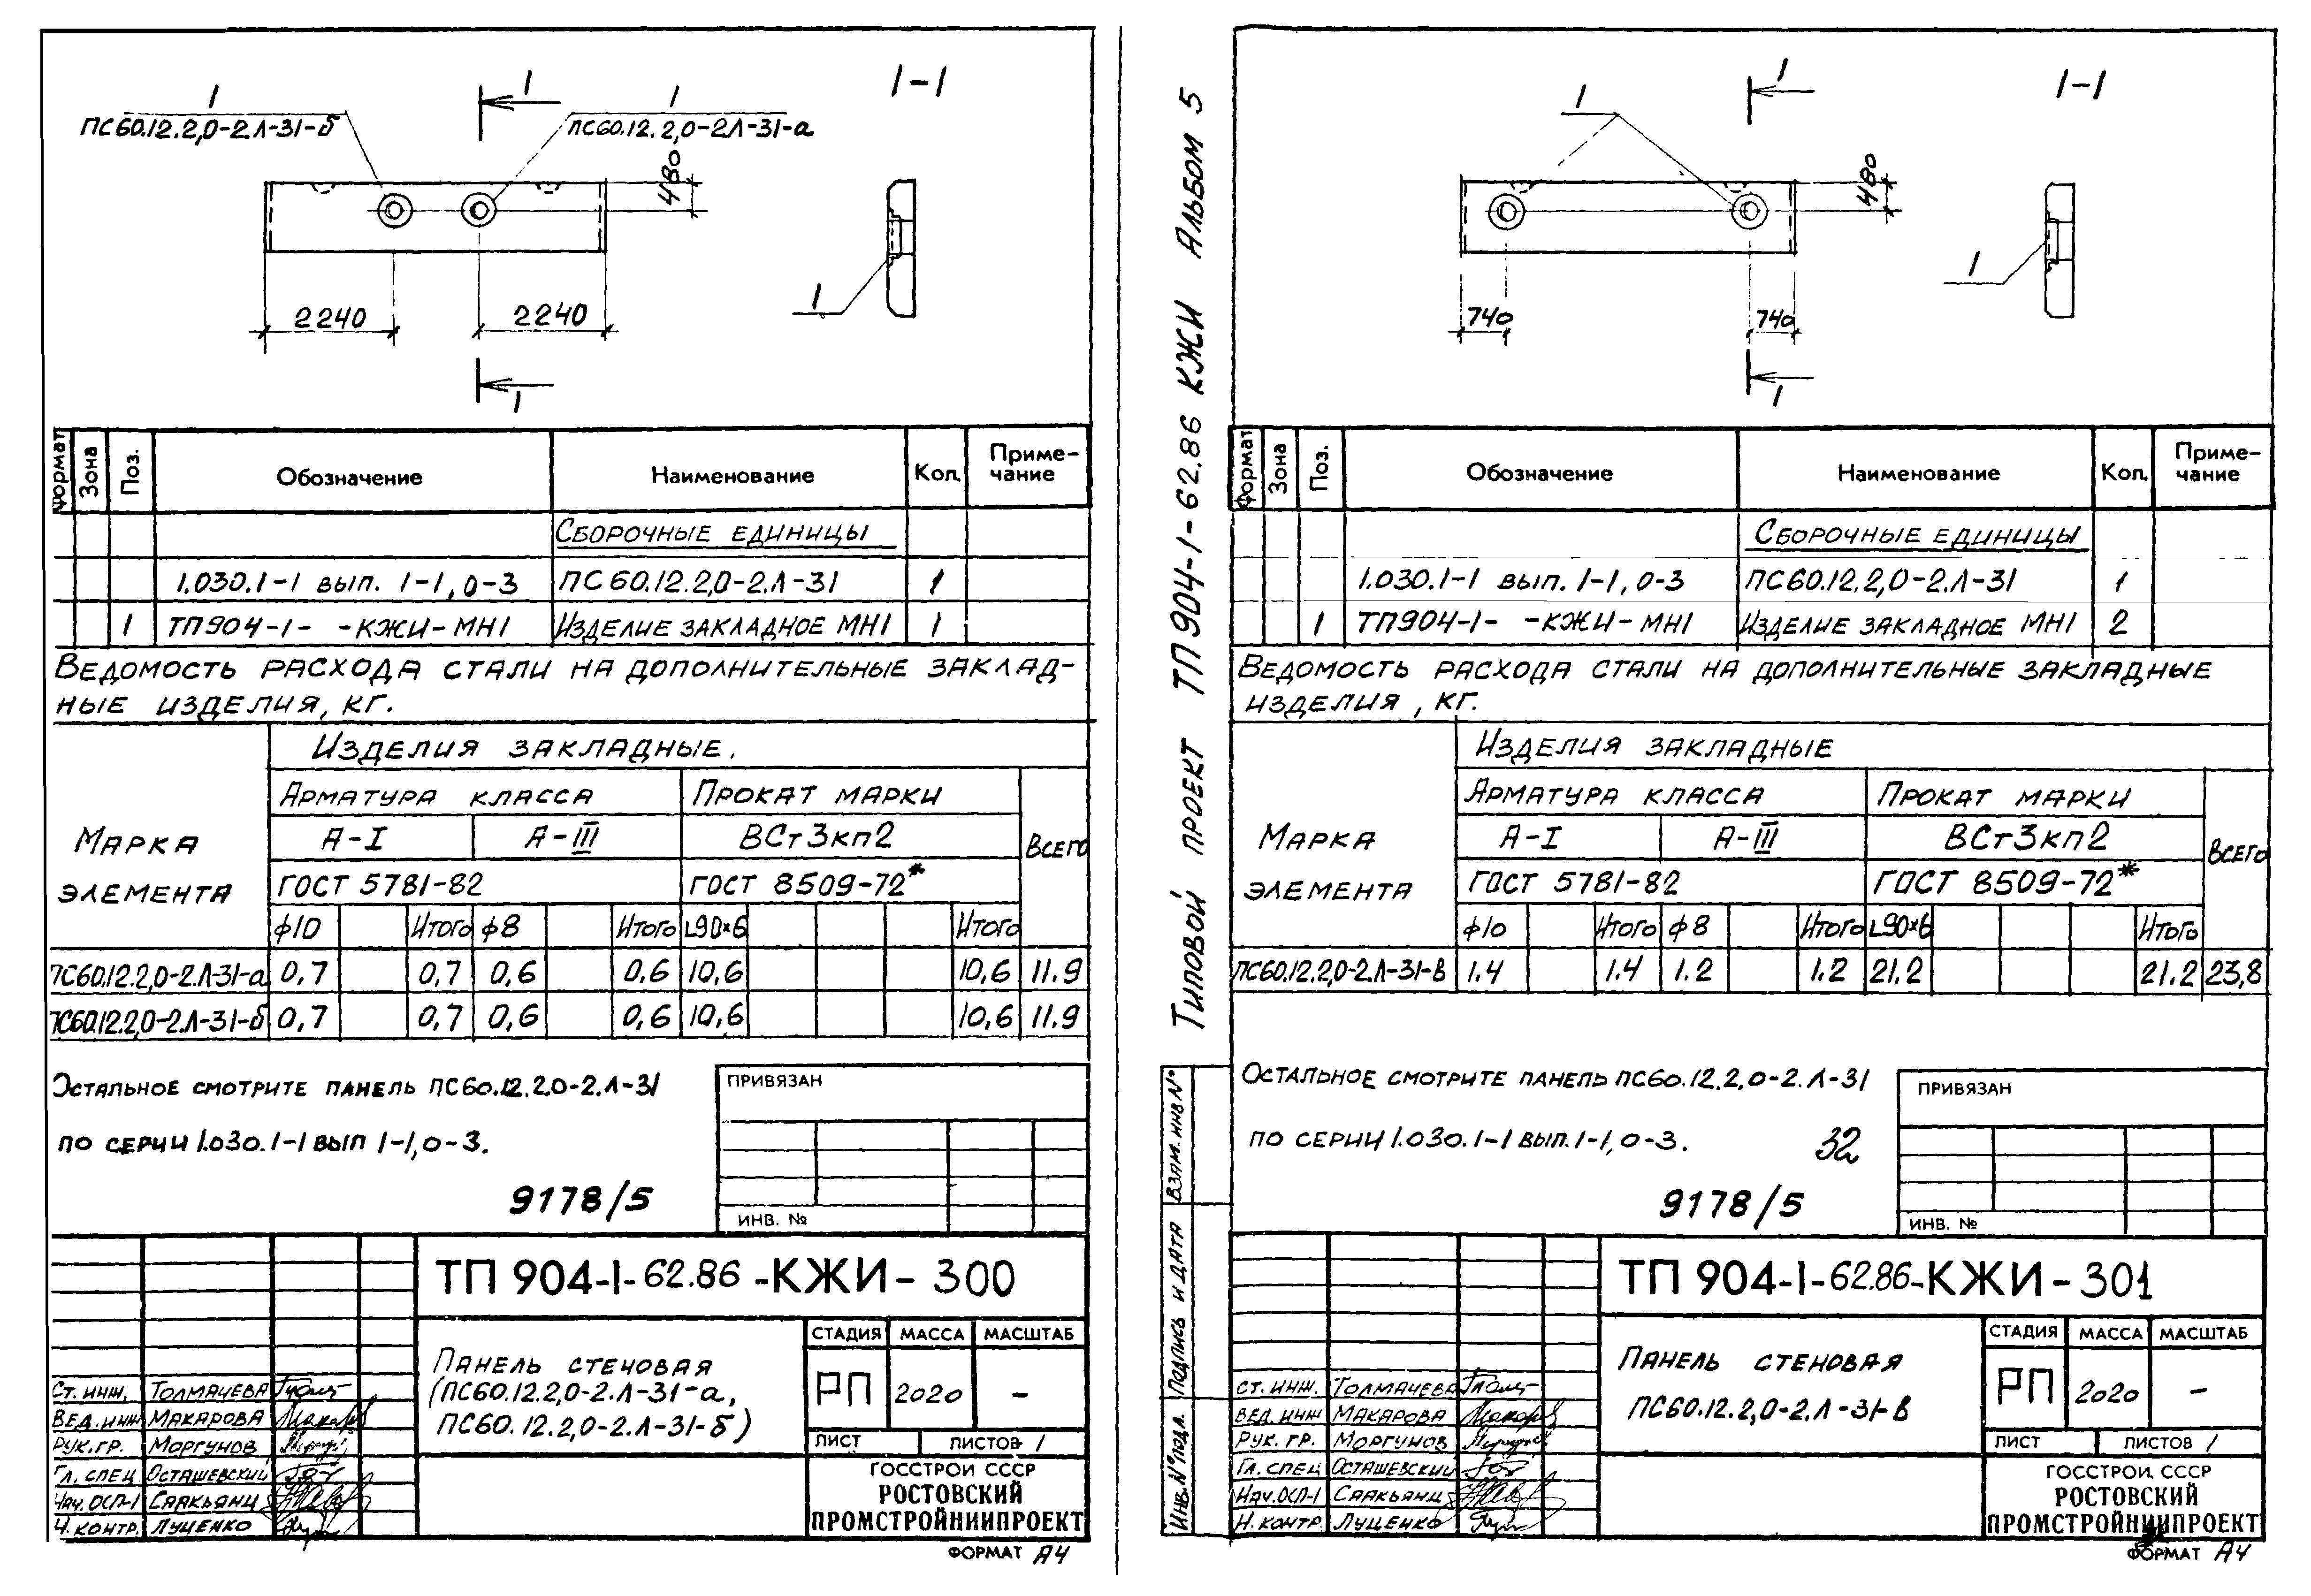 1
ПС60.12.2,0-2.Л-31-б
1
1
ПС60.12.2,0-2Л-31-а
1-1
480
2240
2240
1
1
Формат
Зона
Поз.
Обозначение
Наименование
Кол.
Приме-
чание
Сборочные единицы
1.030.1-1 вып. 1-1, 0-3
ПС60.12.2,0-2.Л-31
1
1
ТП904-1- -КЖИ-МН1
Изделие закладное МН1
1
Ведомость расхода стали на дополнительные заклад-
ные изделия, кг.
Марка
элемента
Изделия закладные.
Арматура класса
Прокат марки
Всего
А-I
А-III
ВСт3кп2
ГОСТ 5781-82
ГОСТ 8509-72*
ф10
Итого
ф8
Итого
L90×6
Итого
ПС60.12.2,0-2.Л-31-а 0,7 0,7 0,6 0,6 10,6 10,6 11.9
ПС60.12.2,0-2.Л-31-б 0,7 0,7 0,6 0,6 10,6 10,6 11.9
Остальное смотрите панель ПС60.12.2,0-2.Л-31
по серии 1.030.1-1 вып 1-1, 0-3.
9178/5
ПРИВЯЗАН
ИНВ. №
ТП 904-1-62.86-КЖИ-300
Панель стеновая
(ПС60.12.2,0-2.Л-31-а,
ПС60.12.2,0-2.Л-31-б)
СТАДИЯ
МАССА
МАСШТАБ
РП
2020
–
ЛИСТ
ЛИСТОВ 1
ГОССТРОЙ СССР
РОСТОВСКИЙ
ПРОМСТРОЙНИИПРОЕКТ
Ст. инж. Толмачева
Вед. инж Макарова
Рук. гр. Моргунов
Гл. спец Осташевский
Нач. ОСП-1 Саакьянц
Н. контр. Луценко
ФОРМАТ А4
Типовой проект ТП 904-1-62.86 КЖИ Альбом 5
Взам. инв №
Подпись и дата
Инв. № подл.
1
1
1-1
480
740
740
1
1
Формат
Зона
Поз.
Обозначение
Наименование
Кол.
Приме-
чание
Сборочные единицы
1.030.1-1 вып. 1-1, 0-3
ПС60.12.2,0-2.Л-31
1
1
ТП904-1- -КЖИ-МН1
Изделие закладное МН1
2
Ведомость расхода стали на дополнительные закладные
изделия, кг.
Марка
элемента
Изделия закладные
Арматура класса
Прокат марки
Всего
А-I
А-III
ВСт3кп2
ГОСТ 5781-82
ГОСТ 8509-72*
ф10
Итого
ф8
Итого
L90×6
Итого
ПС60.12.2,0-2.Л-31-в 1.4 1.4 1.2 1.2 21.2 21.2 23,8
Остальное смотрите панель ПС60.12.2,0-2.Л-31
по серии 1.030.1-1 вып. 1-1, 0-3.
32
9178/5
ПРИВЯЗАН
ИНВ. №
ТП 904-1-62.86-КЖИ-301
Панель стеновая
ПС60.12.2,0-2.Л-31-в
СТАДИЯ
МАССА
МАСШТАБ
РП
2020
–
ЛИСТ
ЛИСТОВ 1
ГОССТРОЙ СССР
РОСТОВСКИЙ
ПРОМСТРОЙНИИПРОЕКТ
Ст. инж. Толмачева
Вед. инж Макарова
Рук. гр. Моргунов
Гл. спец Осташевский
Нач. ОСП-1 Саакьянц
Н. контр Луценко
ФОРМАТ А4